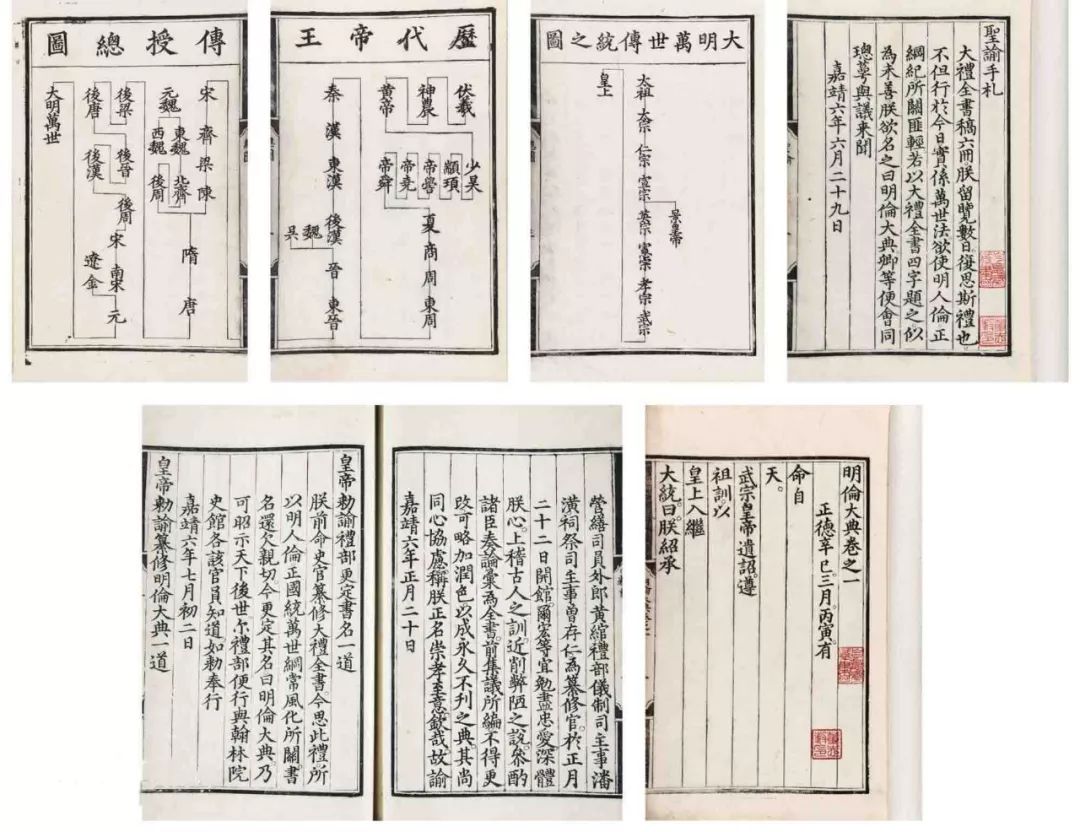 聖諭手札
大禮全書稿六冊朕留覽數日復思斯禮也
不但行於今日實係萬世法欲使明人倫正
綱紀所關匪輕若以大禮全書四字題之似
為未善朕欲名之曰明倫大典卿等便會同
璁萼與議來聞
嘉靖六年六月二十九日
大明萬世傳統之圖
太祖 太宗 仁宗 宣宗 英宗 憲宗 孝宗 武宗
景皇帝
皇上
歷代帝王
伏羲
神農
黃帝
少昊
顓頊
帝嚳
帝堯
帝舜
夏 商 周 東周
秦 漢 東漢 後漢 晉 東晉
魏
吳
傳授總圖
宋 齊 梁 陳
元魏
東魏 北齊
西魏 後周
隋 唐
後梁
後唐
後晉
後漢
後周
宋 南宋 元
遼 金
大明萬世
明倫大典卷之一
正德辛巳三月丙寅有
命自
天。
武宗皇帝遺詔遵
祖訓以
皇上入繼
大統曰朕紹承
營繕司員外郎黃綰禮部儀制司主事潘
潢祠祭司主事曾存仁為纂修官。於正月
二十二日開館。爾宏等宜勉盡忠愛深體
朕心。上稽古人之訓。近削弊陋之說。參酌
諸臣奏論彙為全書。前集議所編不得更
改可略加潤色以成永久不刊之典。其尚
同心協慮稱朕正名崇孝至意欽哉。故諭
嘉靖六年正月二十日
皇帝勅諭禮部更定書名一道
朕前命史官纂修大禮全書。今思此禮所
以明人倫正國統萬世綱常風化所關書
名還欠親切今更定其名曰明倫大典。乃
可昭示天下後世尔禮部便行與翰林院
史館各該官員知道如勅奉行
嘉靖六年七月初二日
皇帝勅諭纂修明倫大典一道